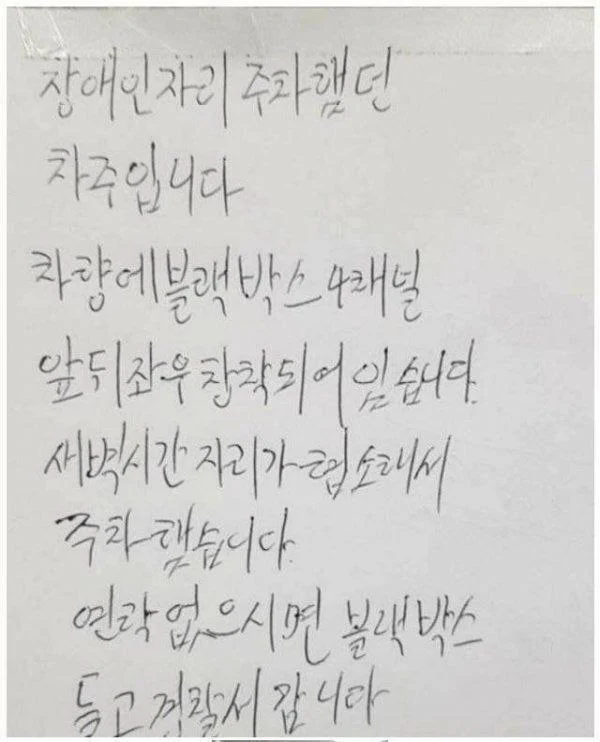 장애인자리 주차햄던
차주입니다
차량에블랙박스 4채널
앞뒤좌우 장착되어 임습니다.
새벽시간 자리가 협소해서
주차 햇습니다.
연락 없으시면 블랙박스
들고 경찰서 갑니다